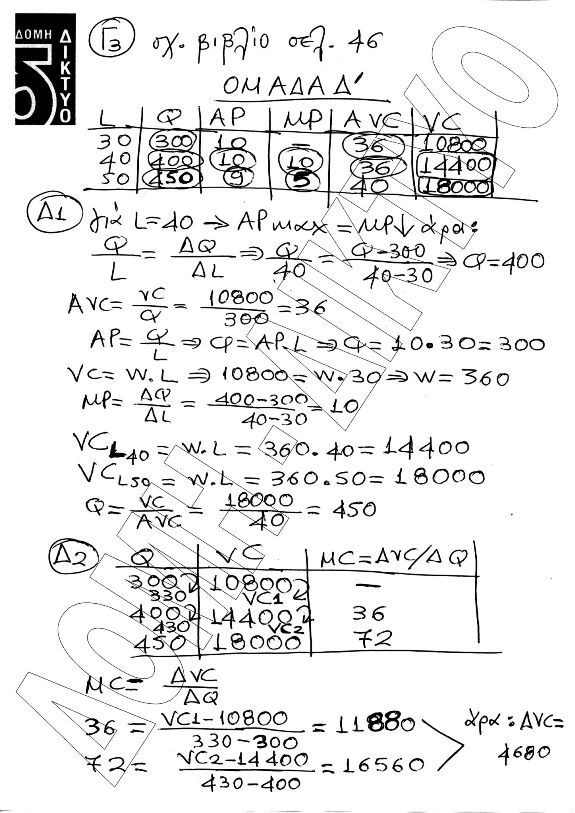 ΔΟΜΗ
5
ΔΙΚΤΥΟ
Γ3 σχ. βιβλίο σελ. 46
ΟΜΑΔΑ Δ'
L Q AP MP AVC VC
30 300 10 — 36 10800
40 400 10 10 36 14400
50 450 9 5 40 18000
Δ1 για L=40 → APmax = MP↓ άρα:
Q/L = ΔQ/ΔL ⇒ Q/40 = Q-300/40-30 ⇒ Q=400
AVC= VC/Q = 10800/300 = 36
AP= Q/L ⇒ Q= AP.L ⇒ Q= 10.30=300
VC= W.L ⇒ 10800= W.30 ⇒ W= 360
MP= ΔQ/ΔL = 400-300/40-30 = 10
VC L40 = W.L = 360.40= 14400
VC L50 = W.L = 360.50= 18000
Q= VC/AVC = 18000/40 = 450
Δ2 Q VC MC=ΔVC/ΔQ
300 10800 —
330 VC1
400 14400 36
430 VC2
450 18000 72
MC= ΔVC/ΔQ
36 = VC1-10800/330-300 = 11880 άρα: ΔVC=
72 = VC2-14400/430-400 = 16560 4680